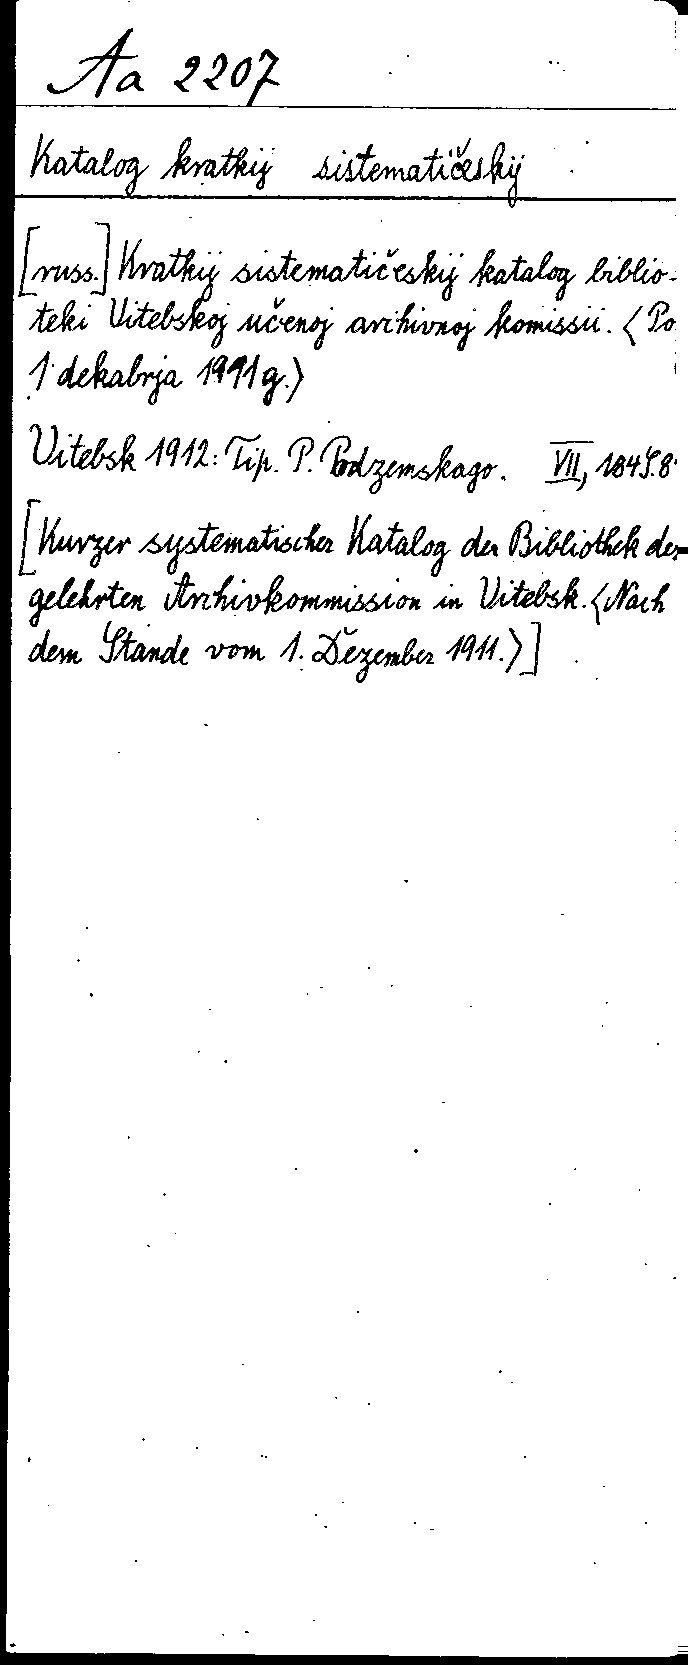 Aa 2207
Katalog kratkij sistematičeskij
[russ.] Kratkij sistematičeskij katalog biblio-
teki Vitebskoj učenoj archivnoj komissii. <Po
1 dekabrja 1991 g.>
Vitebsk 1912: Tip. P. Podzemskago. VII, 184 S. 8°
[Kurzer systematischer Katalog der Bibliothek der
gelehrten Archivkommission in Vitebsk. <Nach
dem Stande vom 1. Dezember 1911.>]